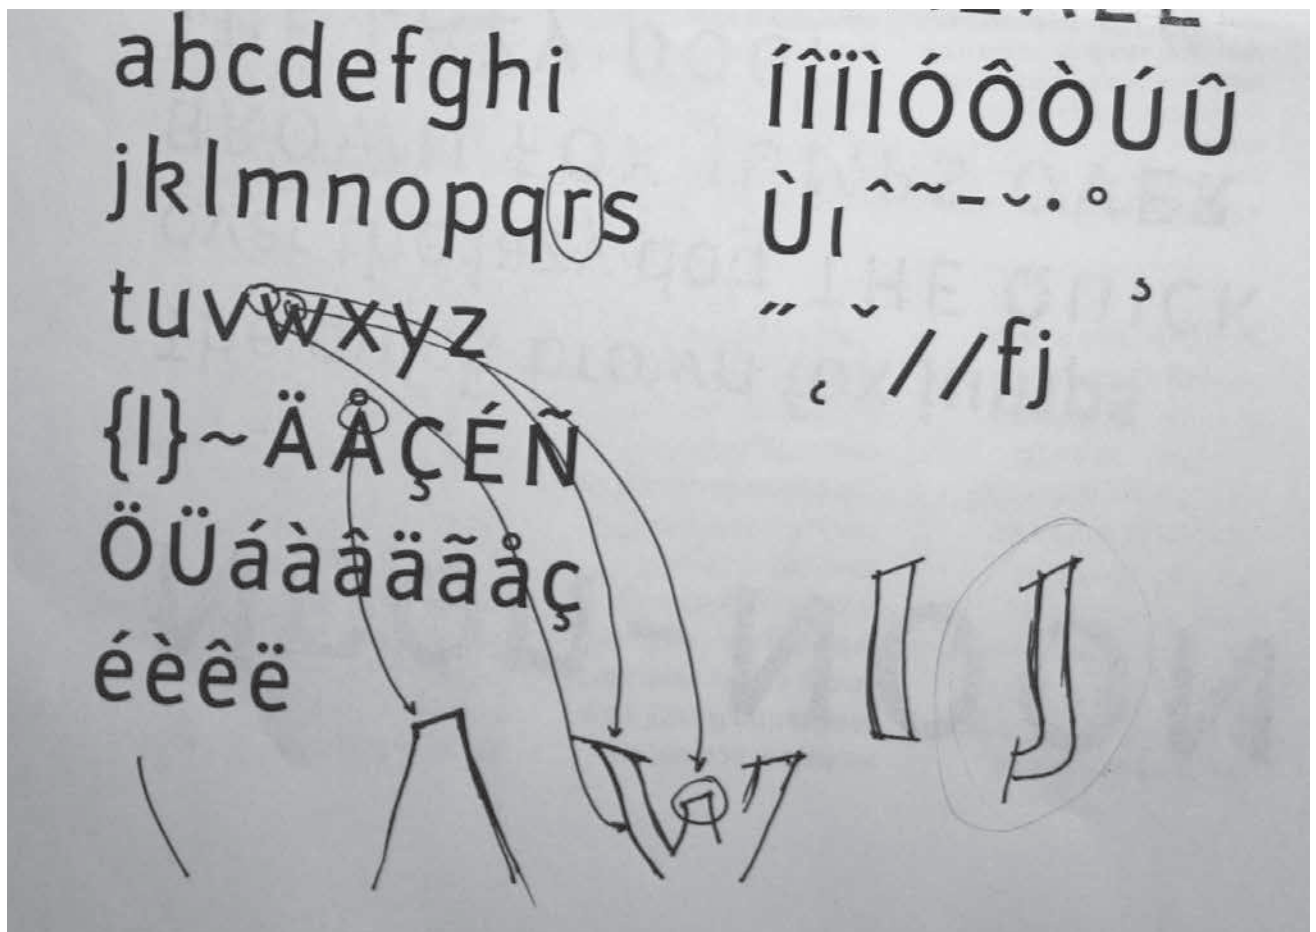 abcdefghi
jklmnopqrs
tuvwxyz
{|}~ÄÅÇÉÑ
ÖÜáàâäãåç
éèêë
ÍÎÏÌÓÔÒÚÛ
Ùıˆ˜¯˘˙˚
˝ˇ¸
˛//fj